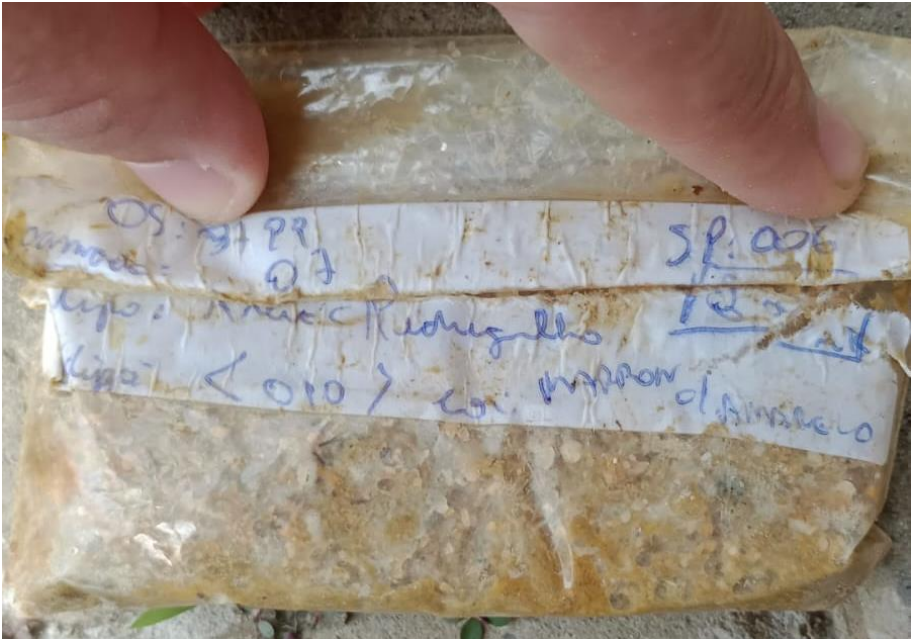 OS: 3799 SP: 006
camada: 07
tipo: Areia c Pedregulho
tipo: < 010 > cor: MARROM d AMARELO